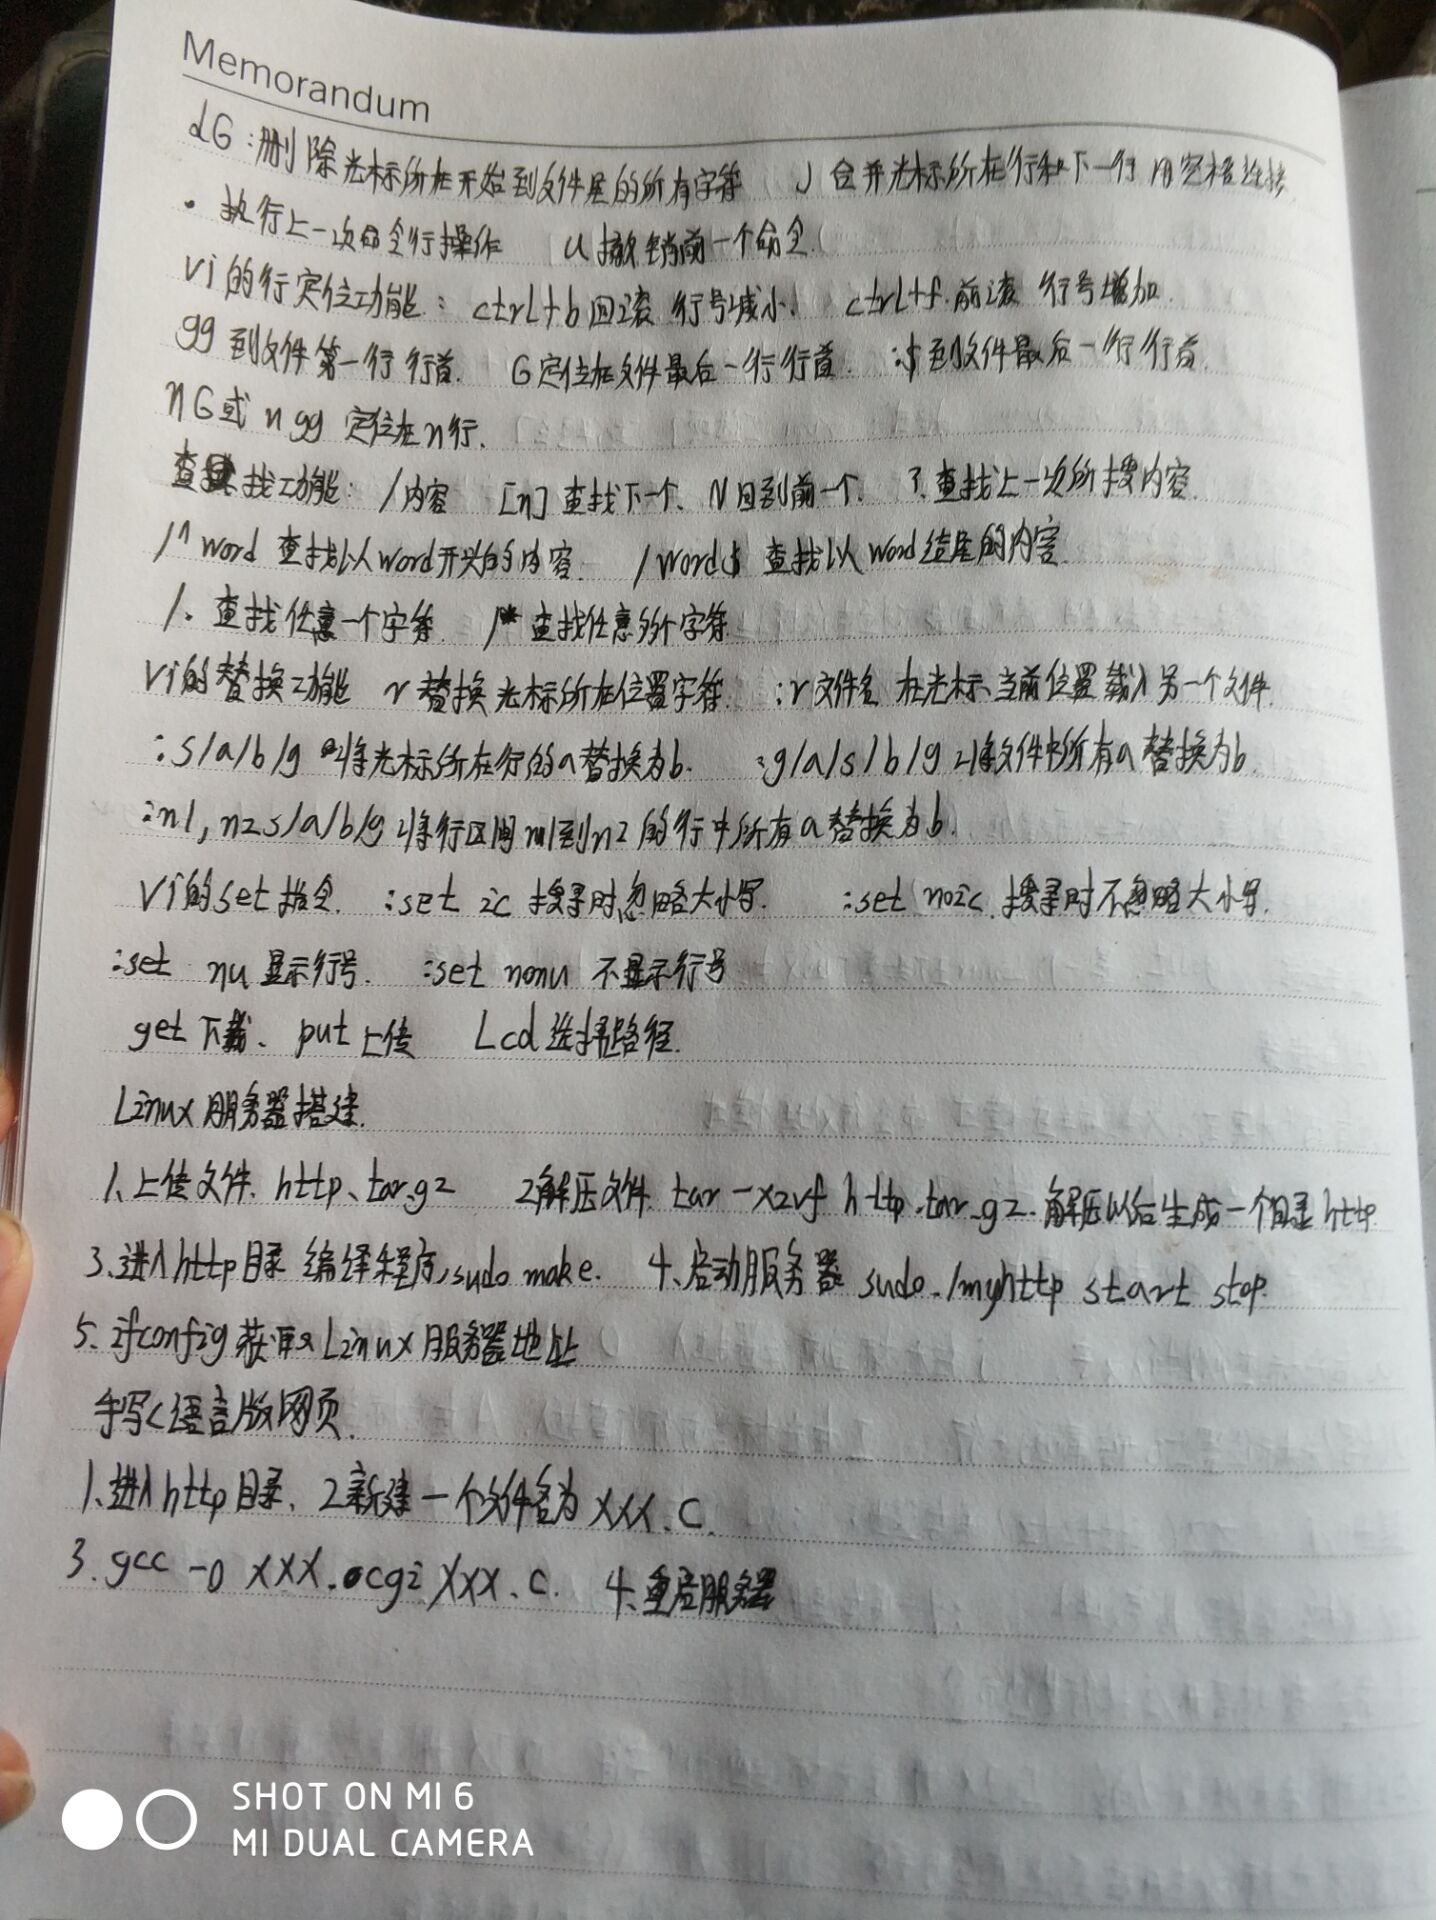 Memorandum
dG:删除光标所在开始到文件尾的所有字符 J 合并光标所在行和下一行 用空格连接
. 执行上一次命令行操作 u 撤销前一个命令.
Vi的行定位功能: ctrl+b 回滚 行号减小、 ctrl+f. 前滚 行号增加.
gg 到文件第一行 行首. G定位在文件最后一行行首. :$到文件最后一行行首.
nG或 n gg 定位在n行.
查找功能: /内容 [n]查找下一个、N回到前一个. ?.查找上一次所搜内容.
/^word 查找以word开头的内容. /word$ 查找以word结尾的内容.
/. 查找任意一个字符. /* 查找任意多个字符.
Vi的替换功能 r 替换光标所在位置字符. :r文件名 在光标当前位置载入另一个文件.
:s/a/b/g 将光标所在行的a替换为b. :g/a/s/b/g 将文件中所有a替换为b.
:n1,n2s/a/b/g 将行区间n1到n2的行中所有a替换为b.
Vi的set指令. :set ic 搜寻时忽略大小写. :set noic 搜寻时不忽略大小写.
:set nu 显示行号. :set nonu 不显示行号
get 下载、put上传 Lcd选择路径.
Linux服务器搭建.
1、上传文件. http、tar.gz 2解压文件. tar -xzvf http.tar.gz. 解压以后生成一个目录http.
3.进入http目录 编译程序,sudo make. 4、启动服务器 sudo ./myhttp start stop.
5、ifconfig获取Linux服务器地址
手写C语言版网页.
1、进入http目录. 2新建一个文件名为 XXX.C.
3.gcc -o XXX.cgi XXX.C. 4、重启服务器
SHOT ON MI 6
MI DUAL CAMERA